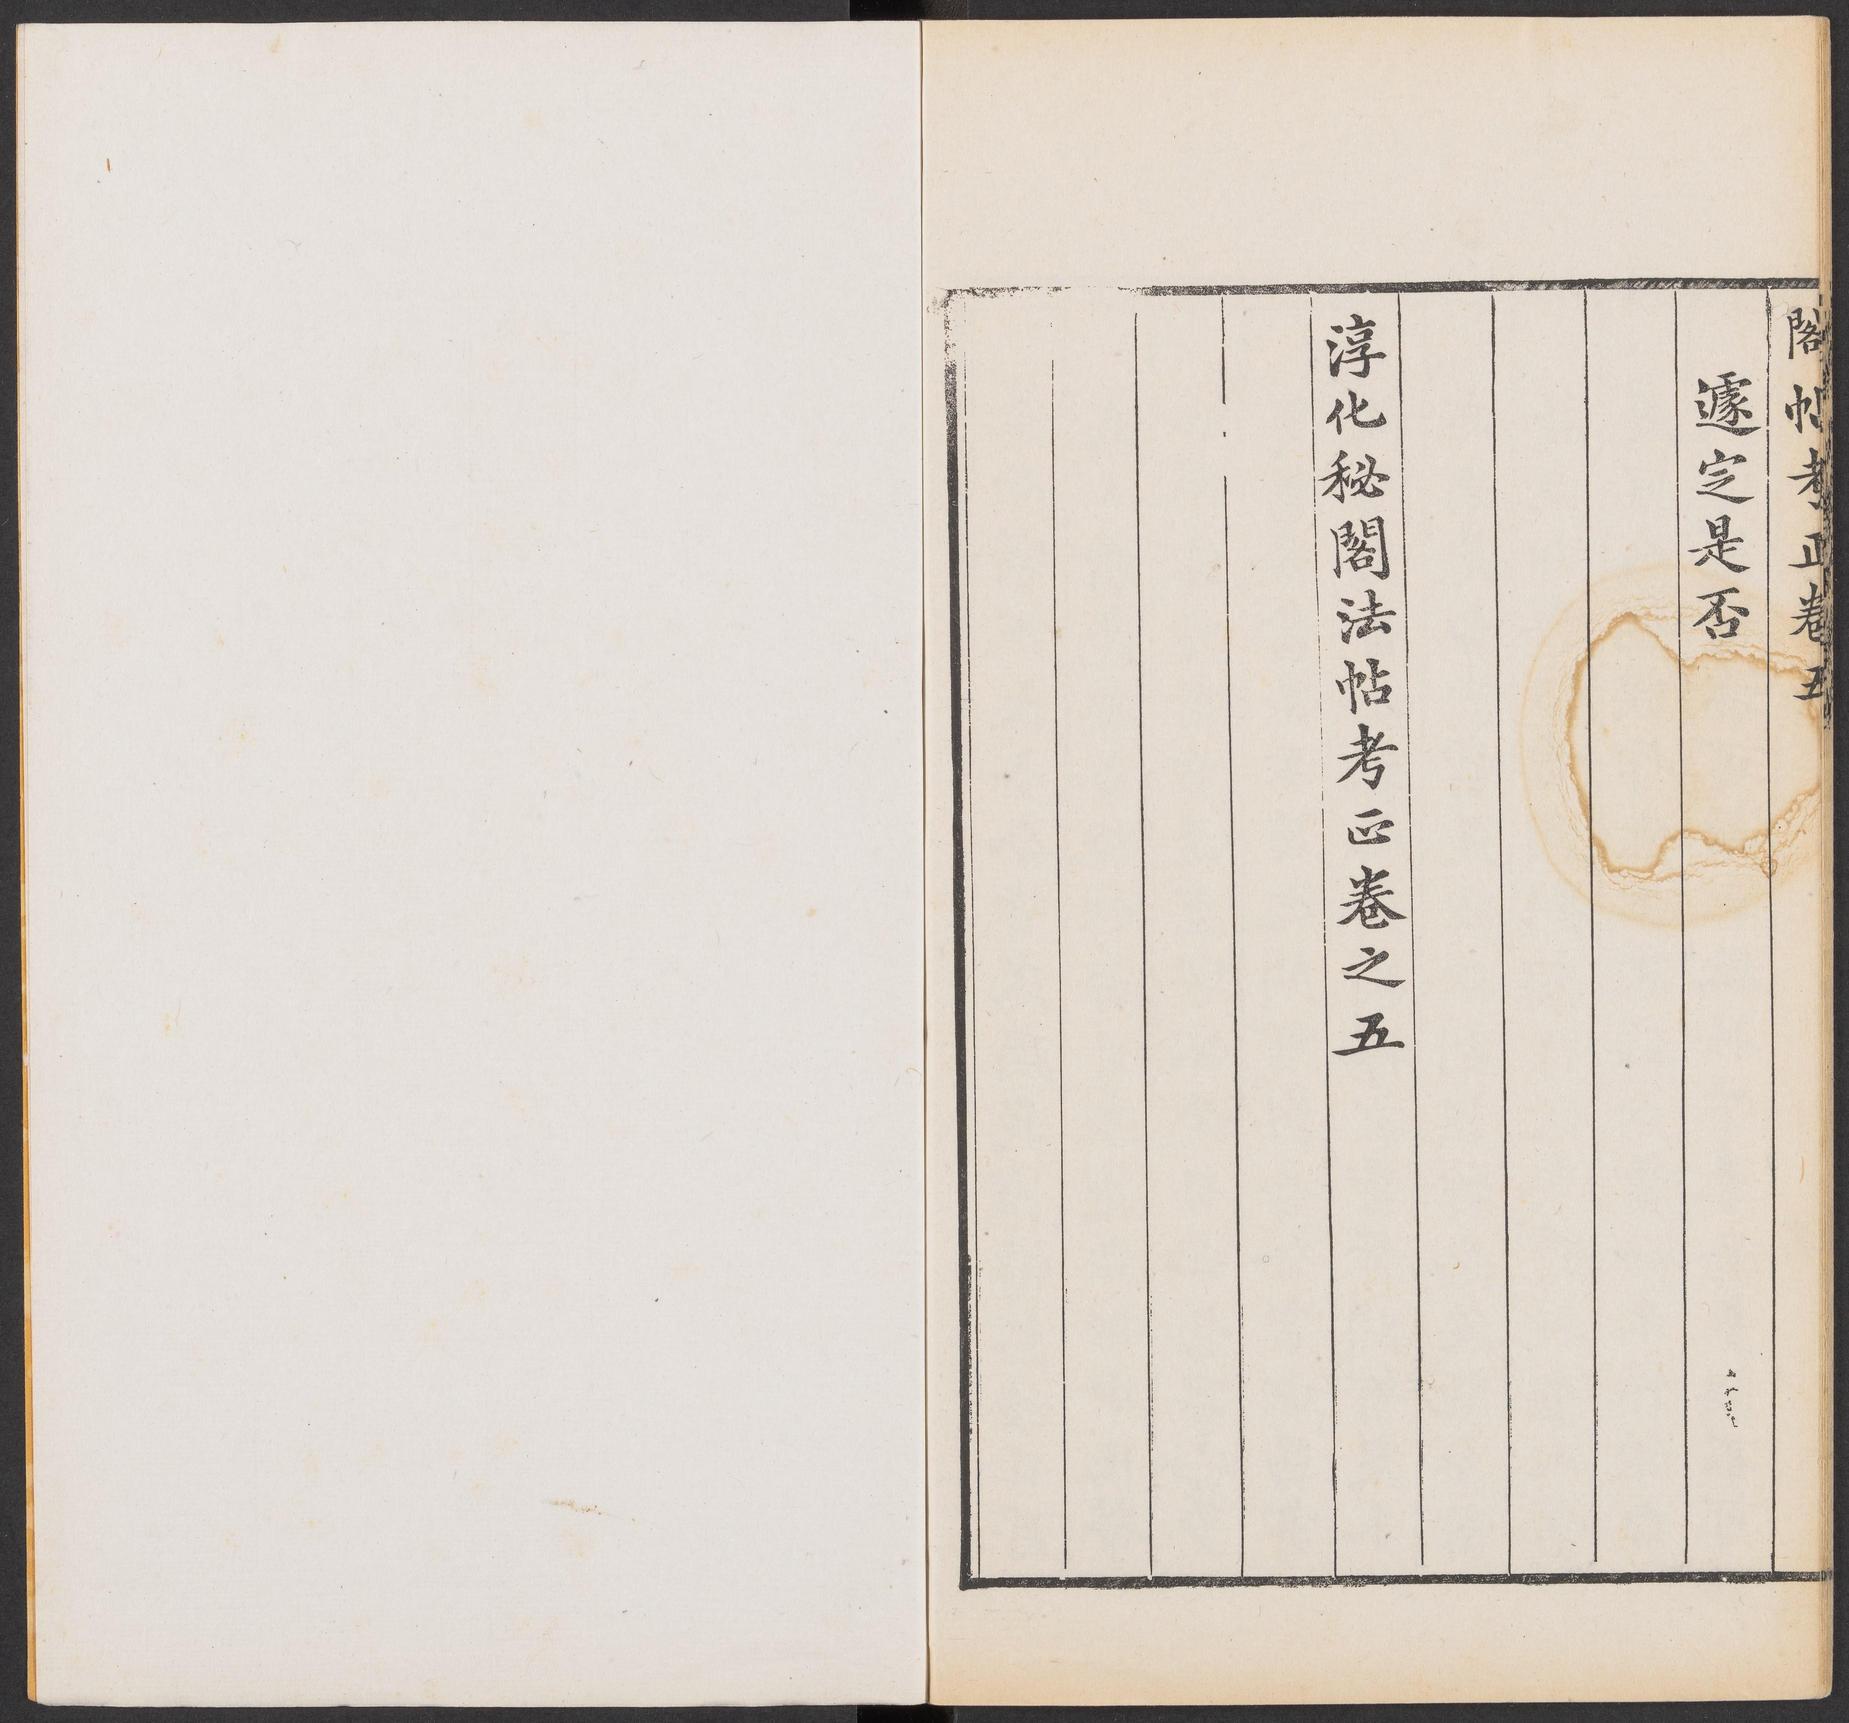 閣帖考正卷五
遽定是否
淳化秘閣法帖考正卷之五